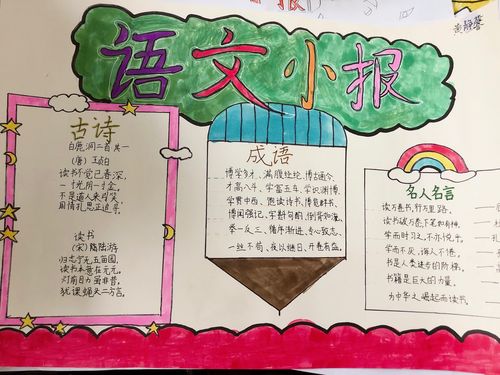 语文小报
古诗
白鹿洞二首其一
(唐)王贞白
读书不觉已春深,
一寸光阴一寸金。
不是道人来引笑,
周情孔思正追寻。
读书
(宋)陆游
归志宁无五亩园,
读书本意在元元。
灯前目力虽非昔,
犹课蝇头二万言。
成语
博学多才、满腹经纶、博古通今、
才高八斗、学富五车、学识渊博、
学贯中西、饱读诗书、博览群书、
博闻强记、字斟句酌、倒背如流、
举一反三、循序渐进、专心致志、
一丝不苟、夜以继日、开卷有益。
名人名言
读万卷书,行万里路。
读书破万卷,下笔如有神。
学而时习之,不亦悦乎。
学而不厌,诲人不倦。
书是人类进步的阶梯。
书籍是巨大的力量。
为中华之崛起而读书